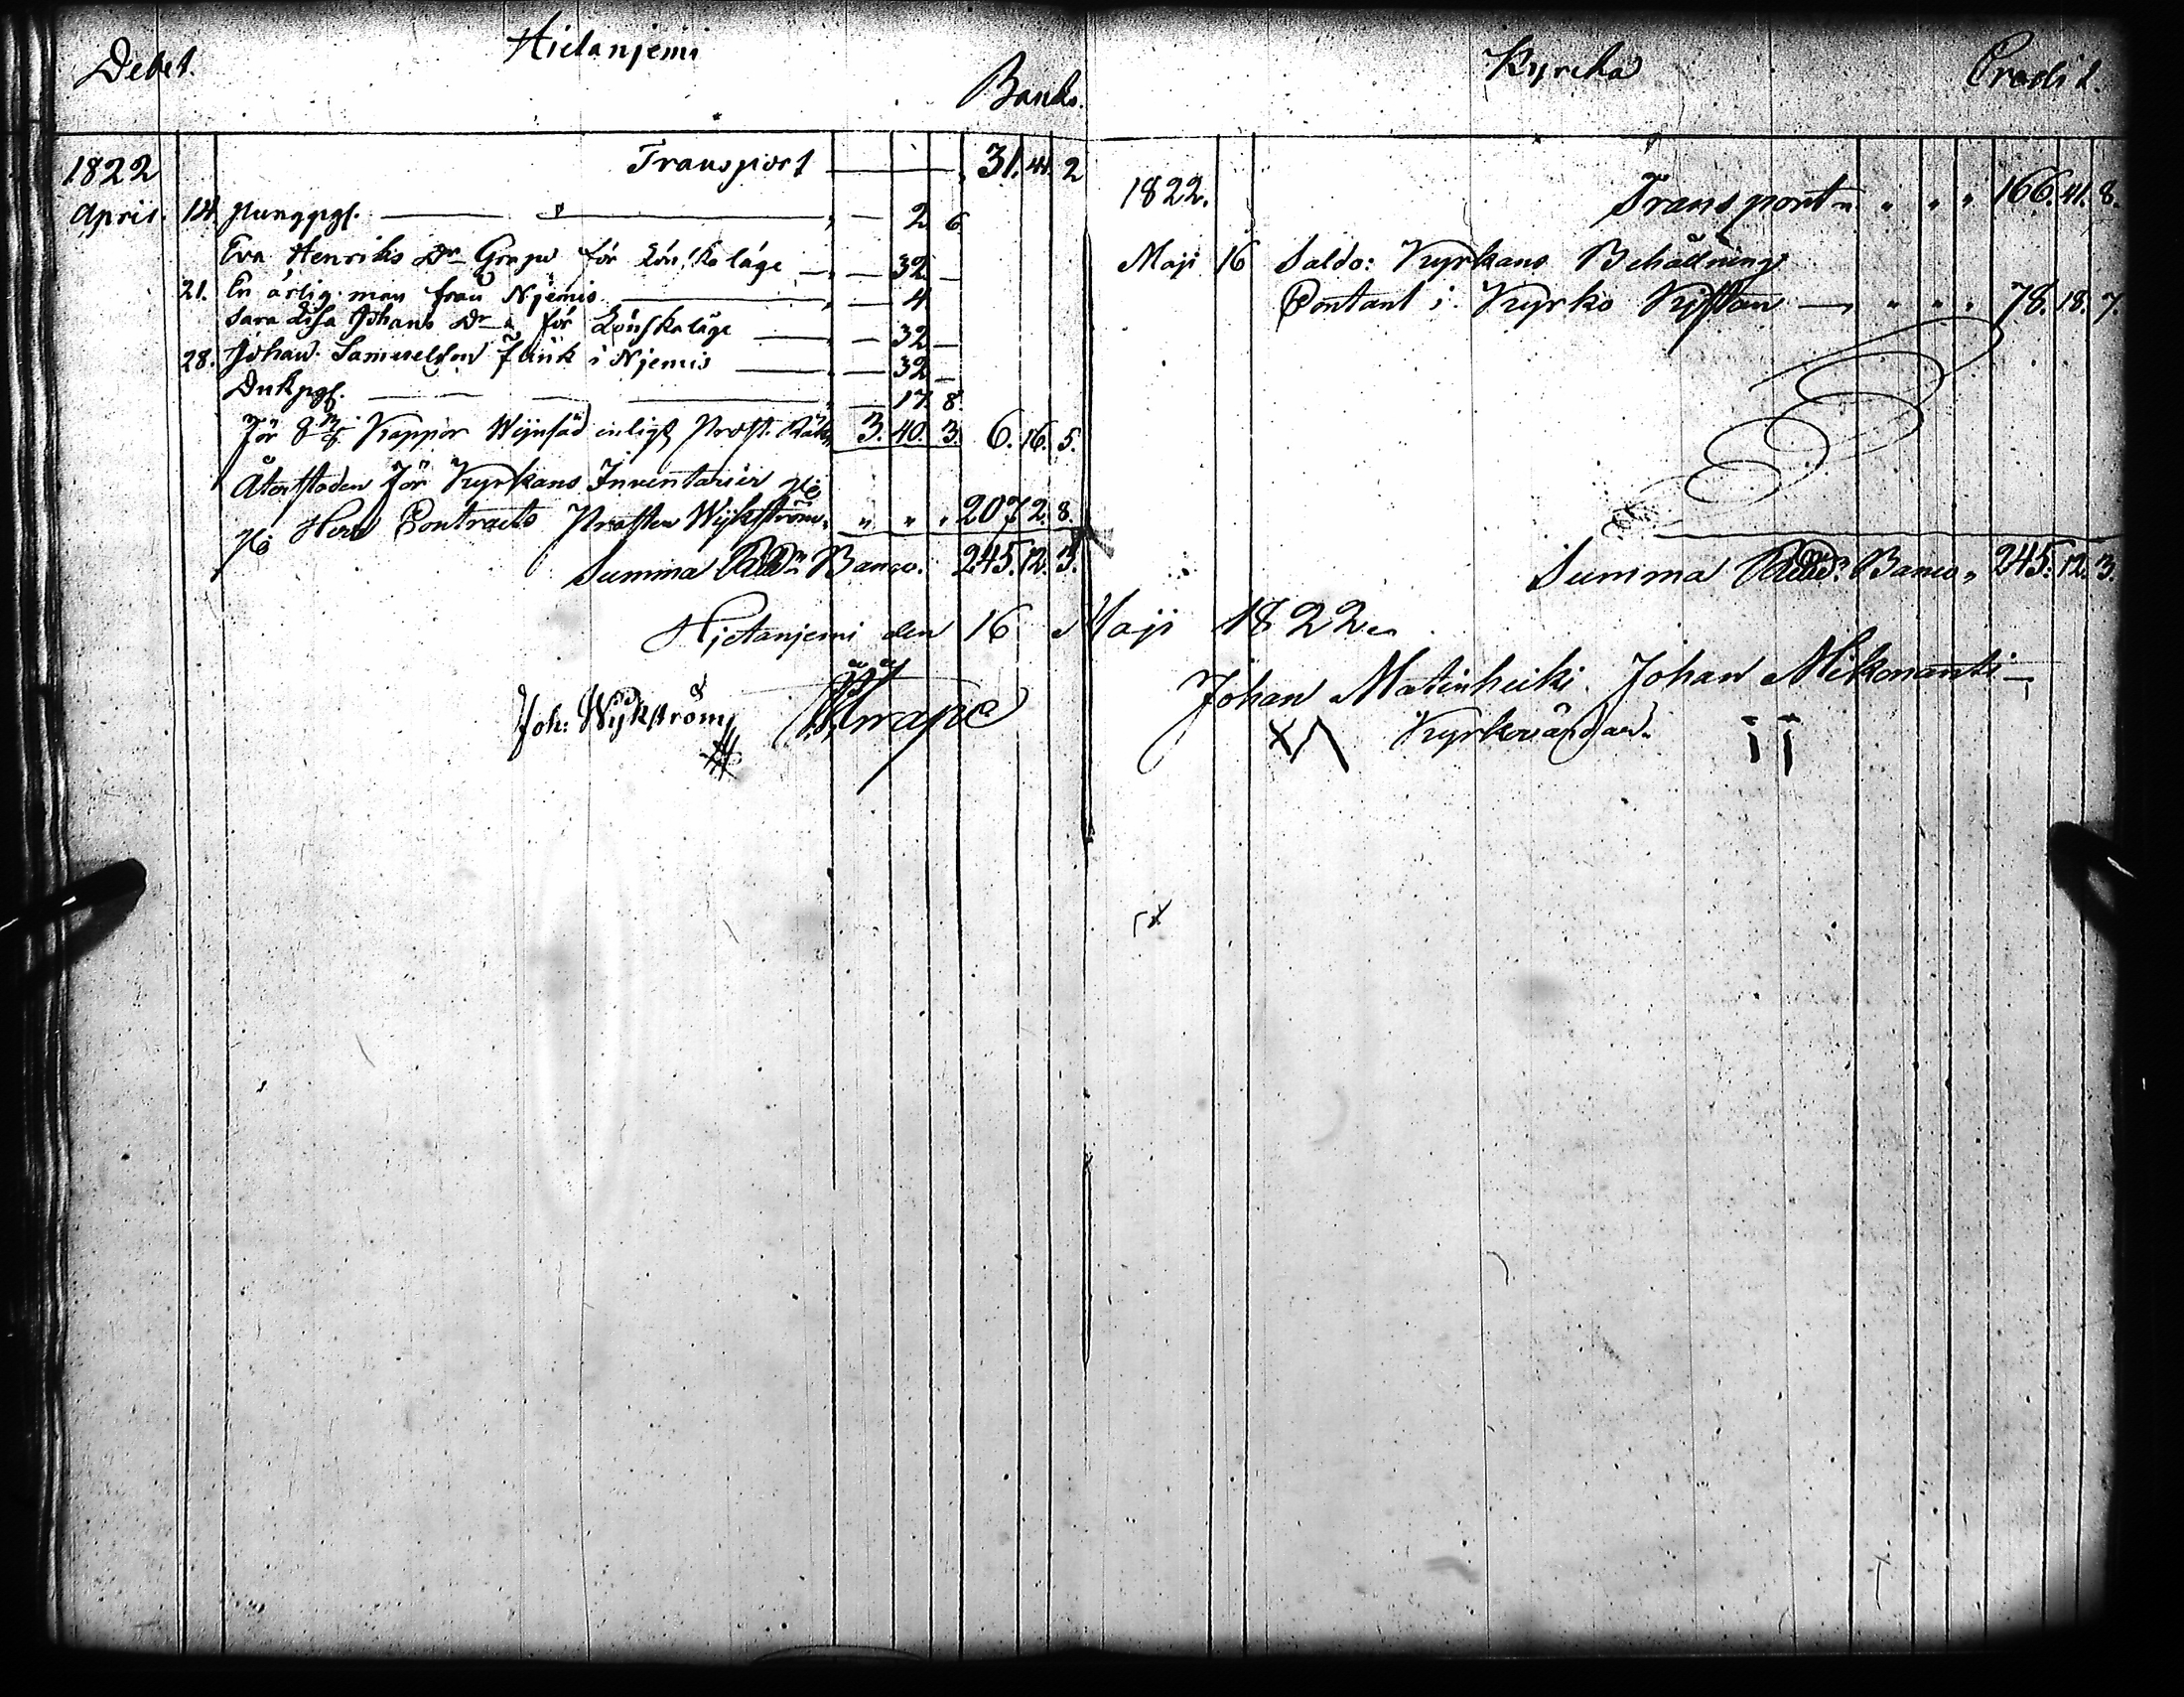 Debet.
Hietanjemi
Banko.
1822
Transport — 31. 41. 2
April. 14. Pungpgr. — — 2. 6.
Eva Henriks Dr Grape för Lönskaläge — — 32 —
21. En ärlig man från Njemis — — 4
Sara Lisa Johans Dr för Lönskaläge — — 32 —
28. Johan Samuelsson Funk i Njemis — — 32 —
Dukpgr. — — 17. 8.
För Kappor Wijnsäd enligt Prost. Räk. 3. 40. 3. 6. 16. 5.
Återstoden för Kyrkans Inventarier
Herr Contracts Prosten Wijkström „ „ „ 207 2. 8.
Summa Rdr Banco. 245. 12. 3.
Hjetanjemi den 16 Maji 1822.
Joh: Wijkström
Grape
Kyrcka
Credit.
1822.
Transport „ „ „ 166. 41. 8.
Maji 16 Saldo: Kyrkans Behållning
Contant i Kyrko Kistan — „ „ „ 78. 18. 7.
Summa Rdr Banco „ 245. 12. 3.
Johan Matinheiki Johan Mikonanti
Kyrkovärdar.